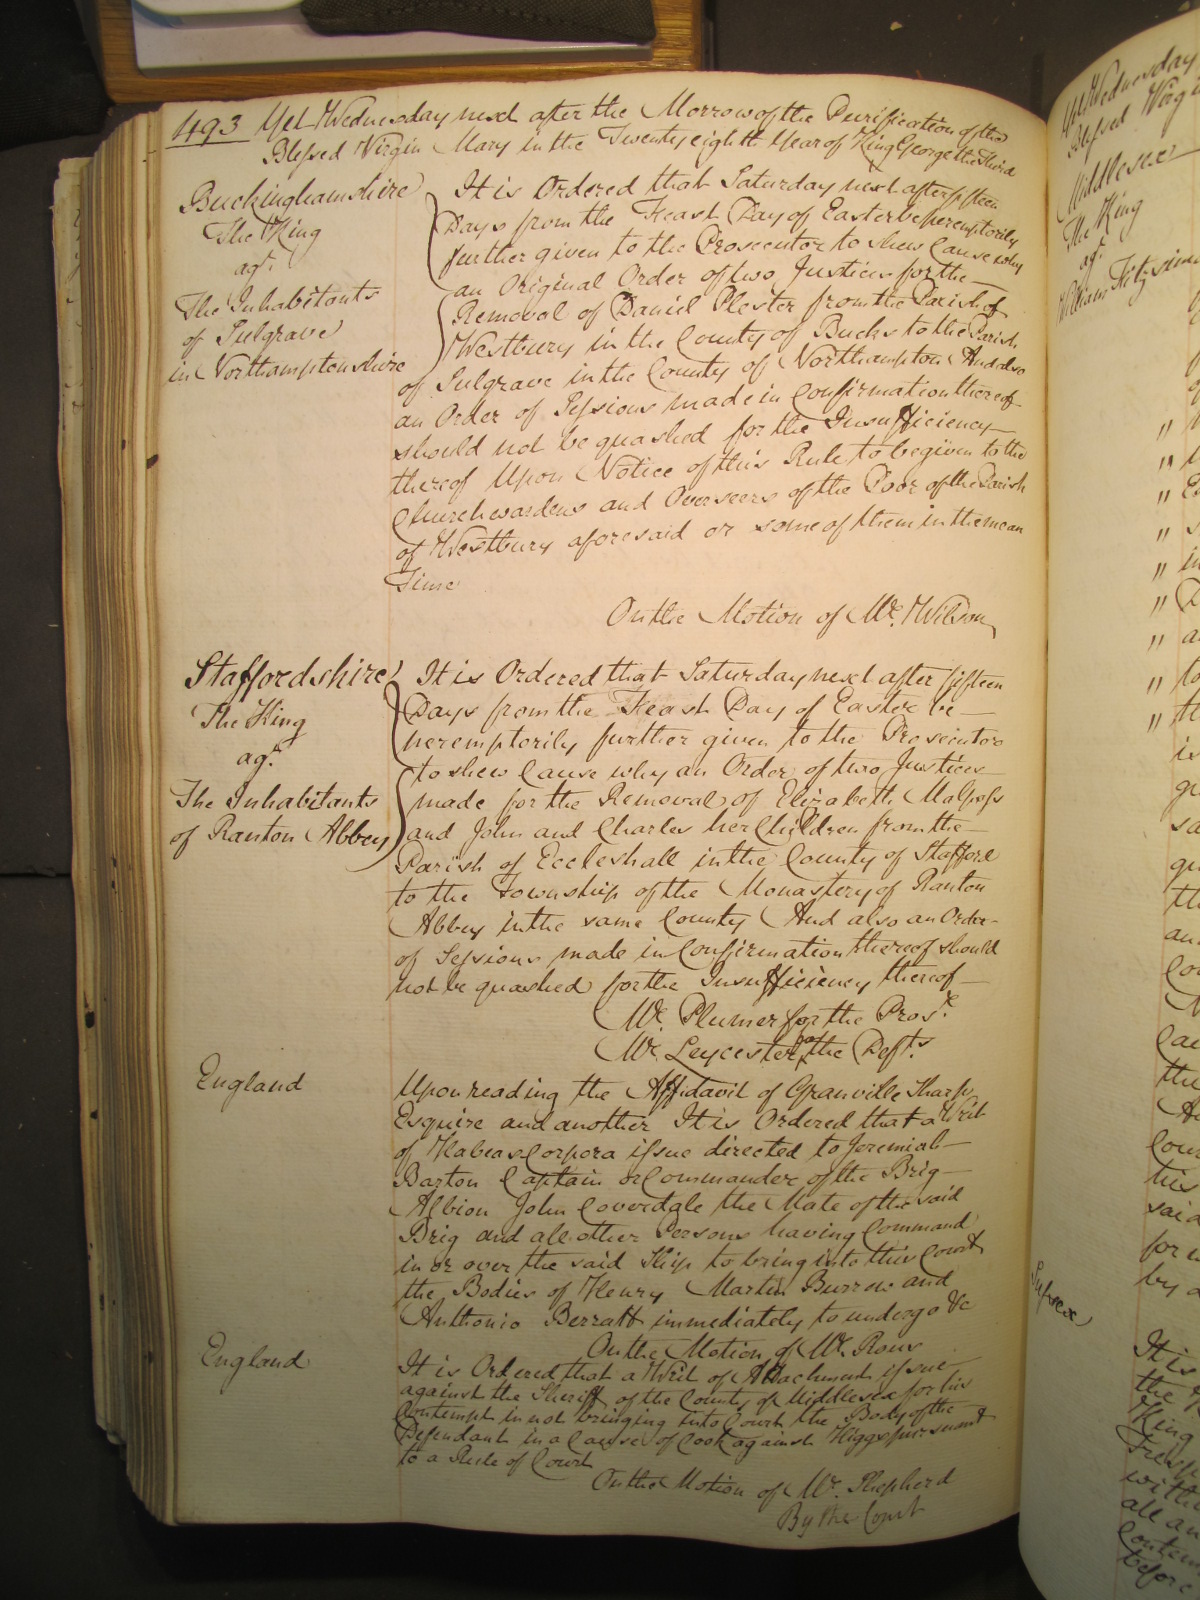 493 Yet Wednesday next after the Morrow of the Purification of the
Blessed Virgin Mary in the Twenty eighth Year of King George the Third
Buckinghamshire
The King
agt.
The Inhabitants
of Sulgrave
in Northamptonshire
It is Ordered that Saturday next after fifteen
Days from the Feast Day of Easter be peremptorily
further given to the Prosecutor to shew Cause why
an Original Order of two Justices for the
Removal of Daniel Plester from the Parish of
Westbury in the County of Bucks to the Parish
of Sulgrave in the County of Northampton And also
an Order of Sessions made in Confirmation thereof
should not be quashed for the Insufficiency
thereof Upon Notice of this Rule to be given to the
Churchwardens and Overseers of the Poor of the Parish
of Westbury aforesaid or some of them in the mean
Time
On the Motion of Mr. Wilson
Staffordshire
The King
agt.
The Inhabitants
of Ranton Abbey
It is Ordered that Saturday next after fifteen
Days from the Feast Day of Easter be
peremptorily further given to the Prosecutors
to shew Cause why an Order of two Justices
made for the Removal of Elizabeth Malpass
and John and Charles her Children from the
Parish of Eccleshall in the County of Stafford
to the Township of the Monastery of Ranton
Abbey in the same County And also an Order
of Sessions made in Confirmation thereof should
not be quashed for the Insufficiency thereof
Mr. Plumer for the Prosr.
Mr. Leycester for the Defts.
England
Upon reading the Affidavit of Granville Sharp
Esquire and another It is Ordered that a Writ
of Habeas Corpora issue directed to Jeremiah
Barton Captain or Commander of the Brig
Albion John Coverdale the Mate of the said
Brig and all other Persons having Command
in or over the said Ship to bring into this Court
the Bodies of Henry Martin Burrow and
Anthonio Berratt immediately to undergo &c
On the Motion of Mr. Rous
England
It is Ordered that a Writ of Attachment issue
against the Sheriff of the County of Middlesex for his
Contempt in not bringing into Court the Body of the
Defendant in a Cause of Cook against Higgs pursuant
to a Rule of Court
On the Motion of Mr. Shepherd
By the Court
Yet Wednesday
Blessed Virgin
Middlesex
The King
agt.
William
Sussex
It is
the
King